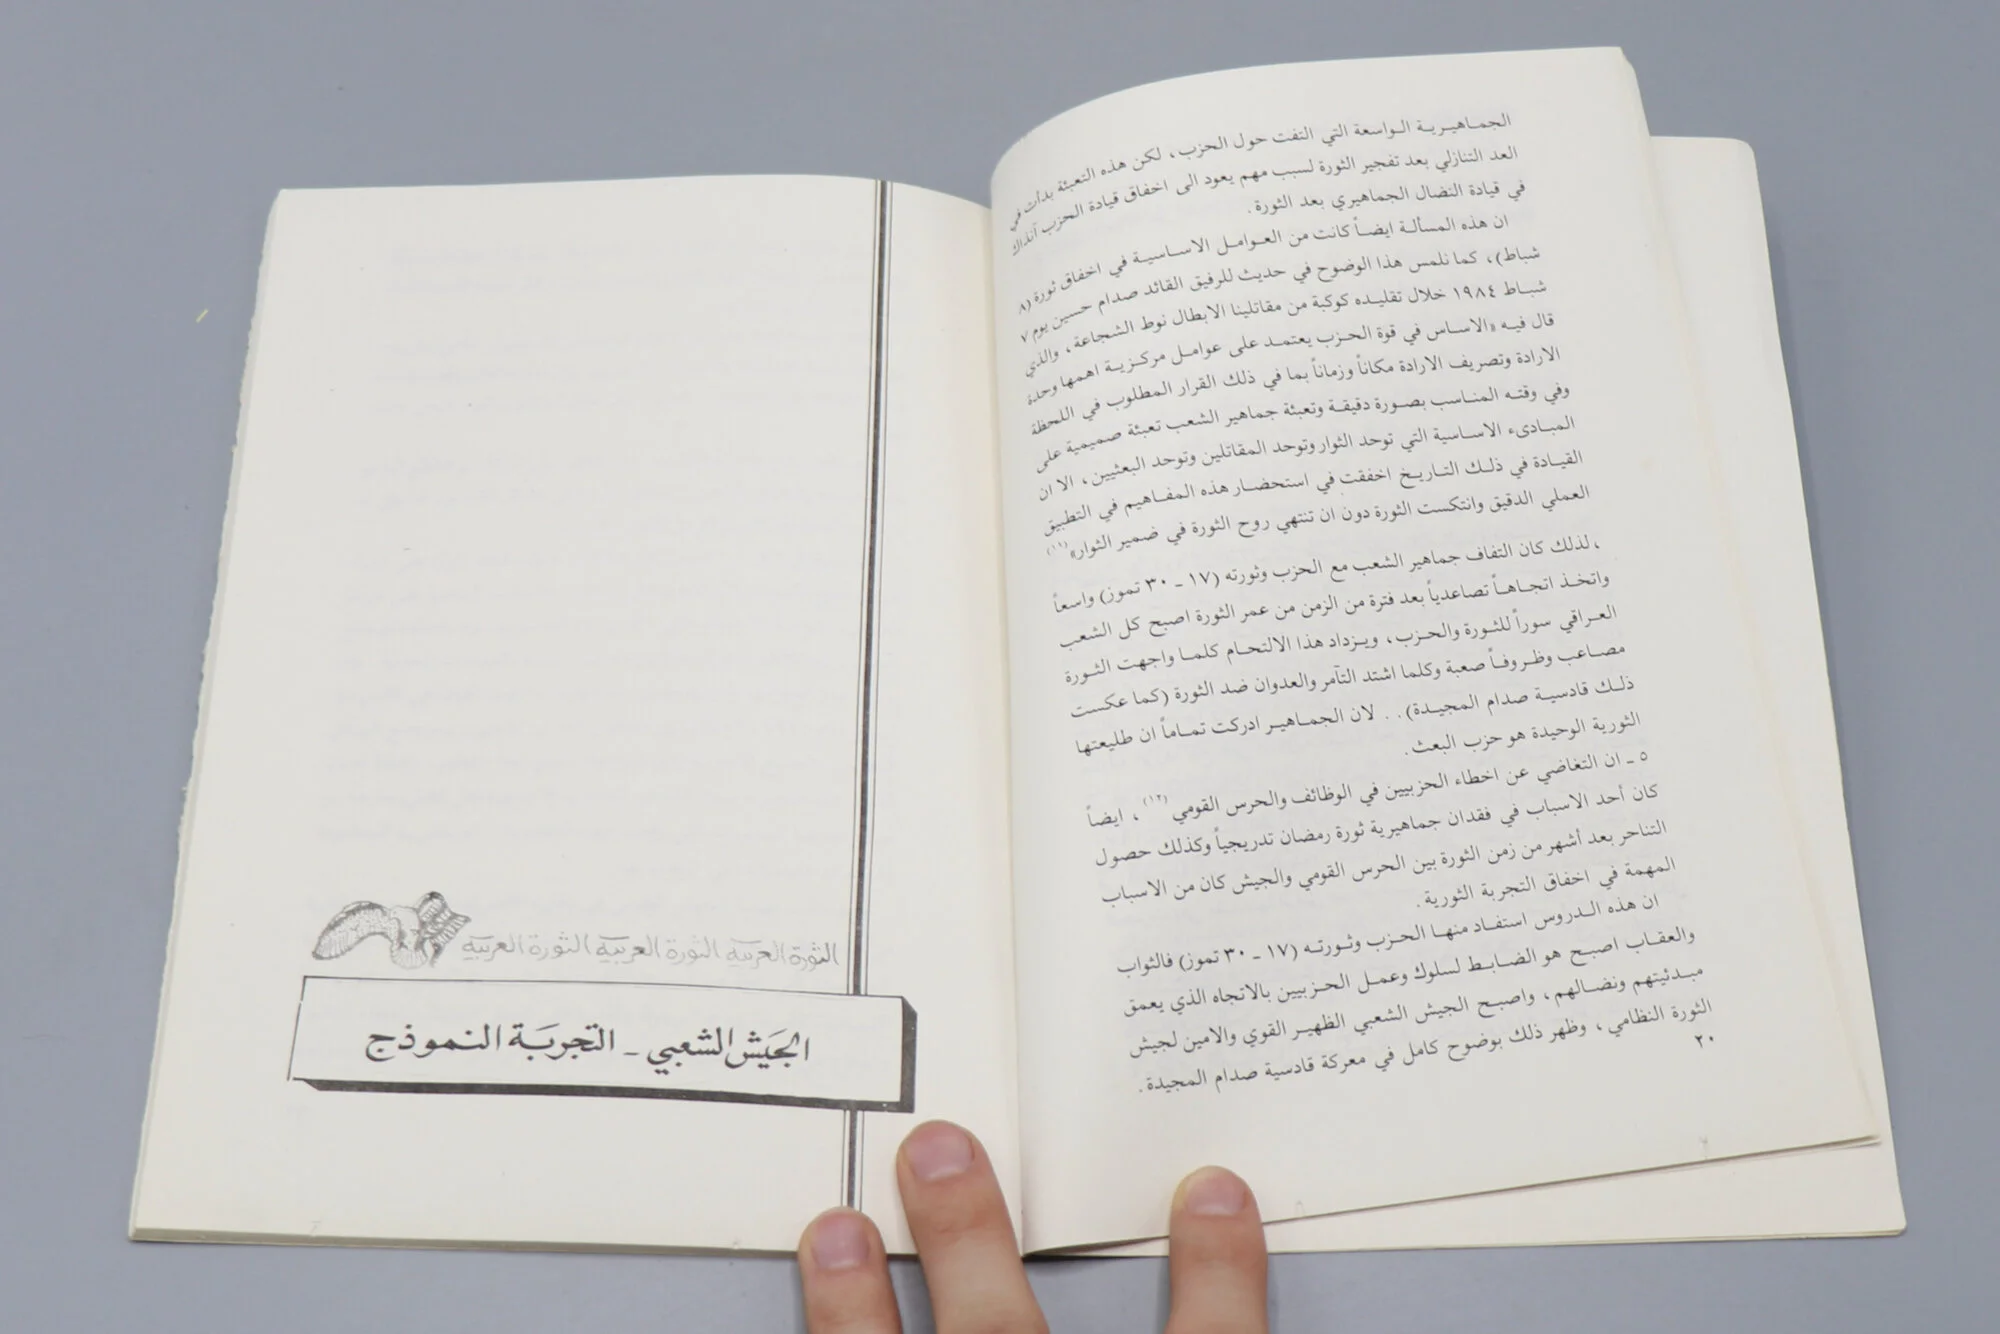 الجماهيرية الواسعة التي التفت حول الحزب، لكن هذه التعبئة بدأت في
العد التنازلي بعد تفجير الثورة لسبب مهم يعود الى اخفاق قيادة الحزب آنذاك
في قيادة النضال الجماهيري بعد الثورة.
ان هذه المسألة ايضاً كانت من العوامل الاساسية في اخفاق ثورة (٨
شباط)، كما نلمس هذا الوضوح في حديث للرفيق القائد صدام حسين يوم ٧
شباط ١٩٨٤ خلال تقليده كوكبة من مقاتلينا الابطال نوط الشجاعة، والذي
قال فيه «الاساس في قوة الحزب يعتمد على عوامل مركزية اهمها وحدة
الارادة وتصريف الارادة مكاناً وزماناً بما في ذلك القرار المطلوب في اللحظة
وفي وقته المناسب بصورة دقيقة وتعبئة جماهير الشعب تعبئة صميمية على
المبادىء الاساسية التي توحد الثوار وتوحد المقاتلين وتوحد البعثيين، الا ان
القيادة في ذلك التاريخ اخفقت في استحضار هذه المفاهيم في التطبيق
العملي الدقيق وانتكست الثورة دون ان تنتهي روح الثورة في ضمير الثوار» (١١)
، لذلك كان التفاف جماهير الشعب مع الحزب وثورته (١٧ - ٣٠ تموز) واسعاً
واتخذ اتجاهاً تصاعدياً بعد فترة من الزمن من عمر الثورة اصبح كل الشعب
العراقي سوراً للثورة والحزب، ويزداد هذا الالتحام كلما واجهت الثورة
مصاعب وظروفاً صعبة وكلما اشتد التآمر والعدوان ضد الثورة (كما عكست
ذلك قادسية صدام المجيدة). . لان الجماهير ادركت تماماً ان طليعتها
الثورية الوحيدة هو حزب البعث.
٥ - ان التغاضي عن اخطاء الحزبيين في الوظائف والحرس القومي (١٢)، ايضاً
كان أحد الاسباب في فقدان جماهيرية ثورة رمضان تدريجياً وكذلك حصول
التناحر بعد أشهر من زمن الثورة بين الحرس القومي والجيش كان من الاسباب
المهمة في اخفاق التجربة الثورية.
ان هذه الدروس استفاد منها الحزب وثورته (١٧ - ٣٠ تموز) فالثواب
والعقاب اصبح هو الضابط لسلوك وعمل الحزبيين بالاتجاه الذي يعمق
مبدئيتهم ونضالهم، واصبح الجيش الشعبي الظهير القوي والامين لجيش
الثورة النظامي، وظهر ذلك بوضوح كامل في معركة قادسية صدام المجيدة.
٢٠
الثورة العربية الثورة العربية الثورة العربية
الجيش الشعبي - التجربة النموذج